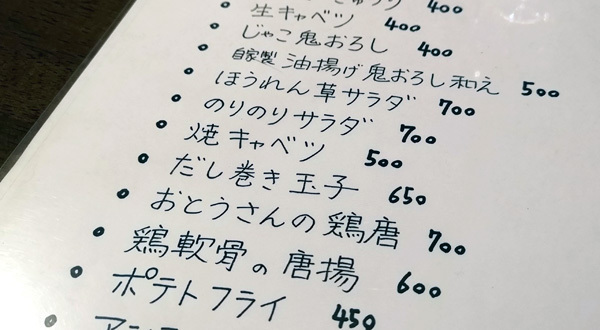 400
生キャベツ 400
じゃこ鬼おろし 400
自家製 油揚げ鬼おろし和え 500
ほうれん草サラダ 700
のりのりサラダ 700
焼キャベツ 500
だし巻き玉子 650
おとうさんの鶏唐 700
鶏軟骨の唐揚 600
ポテトフライ 450